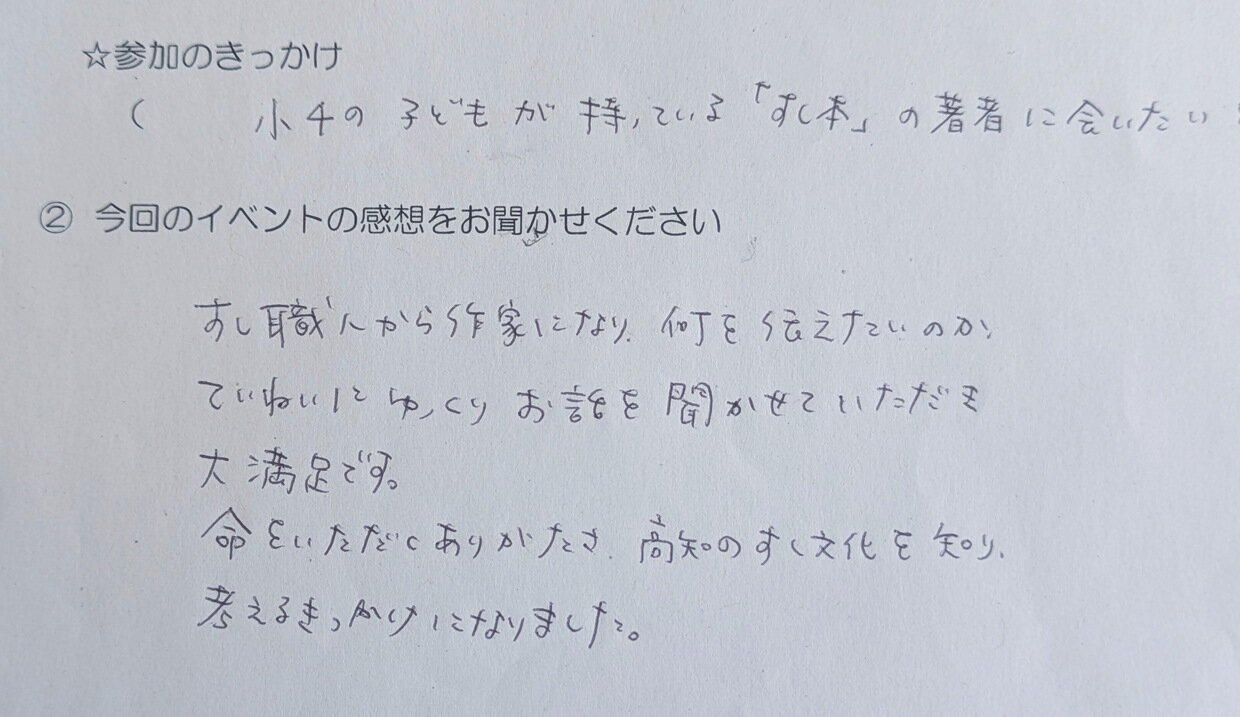 ☆参加のきっかけ
( 小4の子どもが持っている「すし本」の著者に会いたい
② 今回のイベントの感想をお聞かせください
すし職人から作家になり、何を伝えたいのか、
ていねいにゆっくりお話を聞かせていただき
大満足です。
命をいただくありがたさ、高知のすし文化を知り、
考えるきっかけになりました。